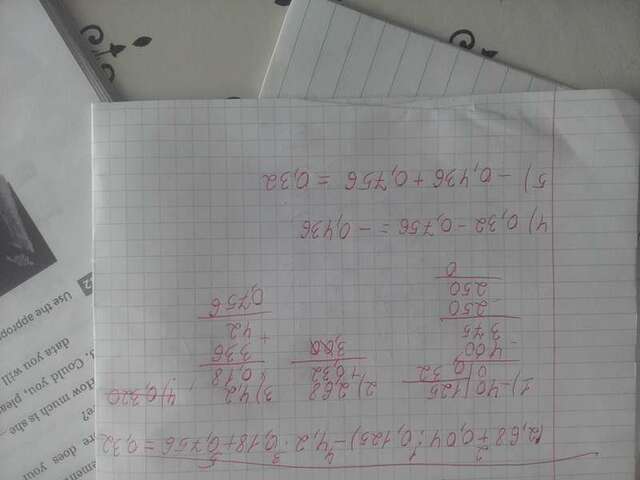 (2,68 + 0,04 : 0,125) - 4,2 · 0,18 + 0,756 = 0,32
1) 40 | 125
0 | 0,32
400
375
250
250
0
2) 2,68
+ 0,32
3,00
3) 4,2
0,18
336
+ 42
0,756
4) 0,32 - 0,756 = - 0,436
5) - 0,436 + 0,756 = 0,32
2 Use the approp
data you will
. Could you plea
How much is she